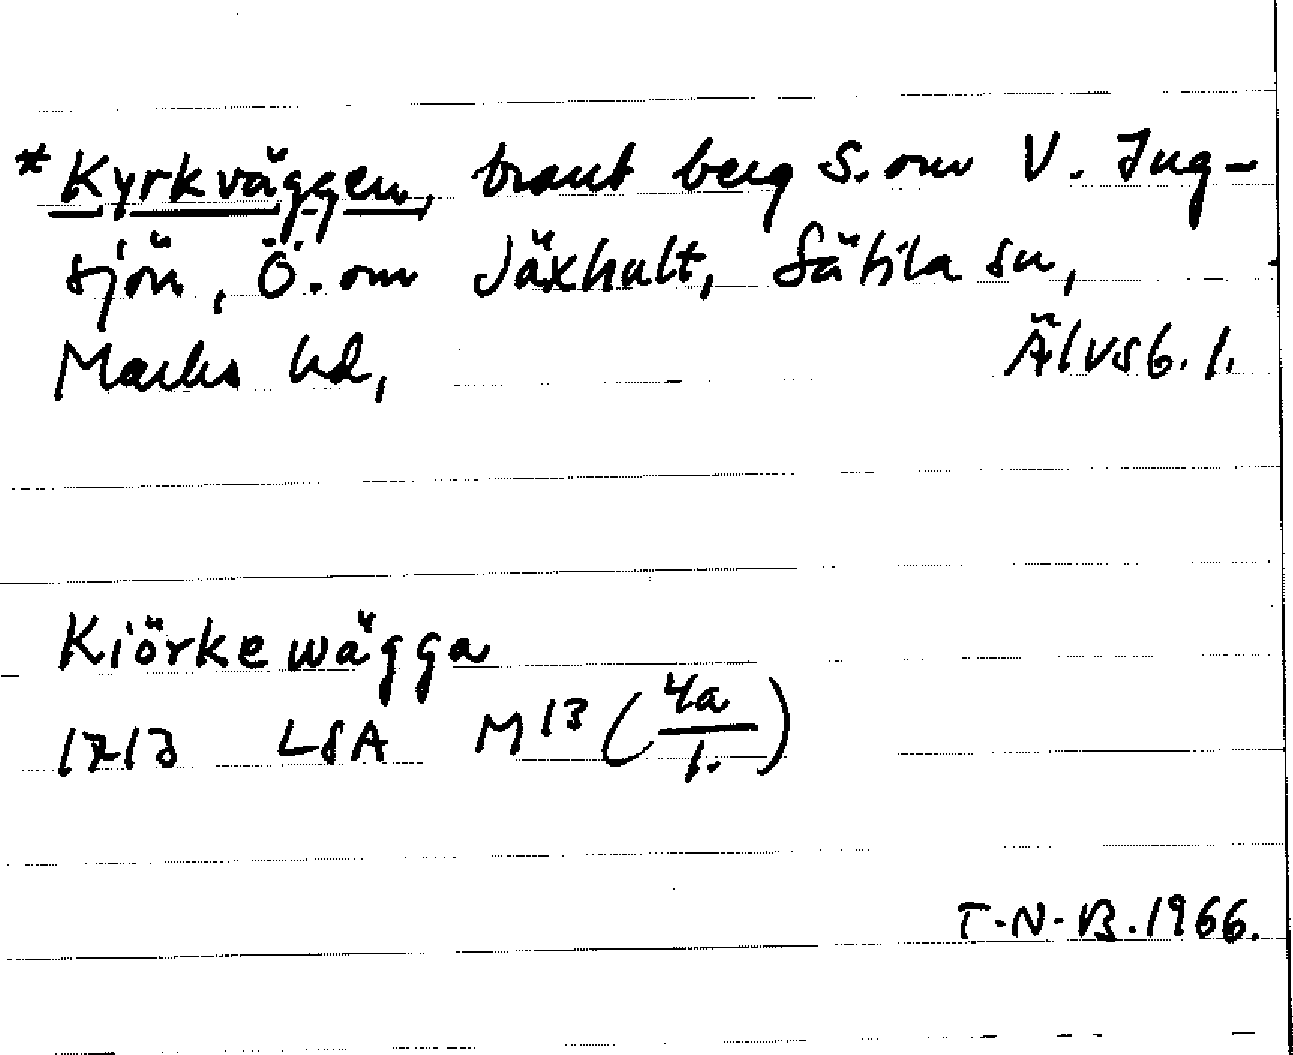 *Kyrkväggen, brant berg S. om V. Ing-
sjön, Ö. om Jäxhult, Sätila sn,
Marks hd, Älvsb. l.
Kiörkewägga
1713 LSA M13 (4a/1.)
T-N-B. 1966.